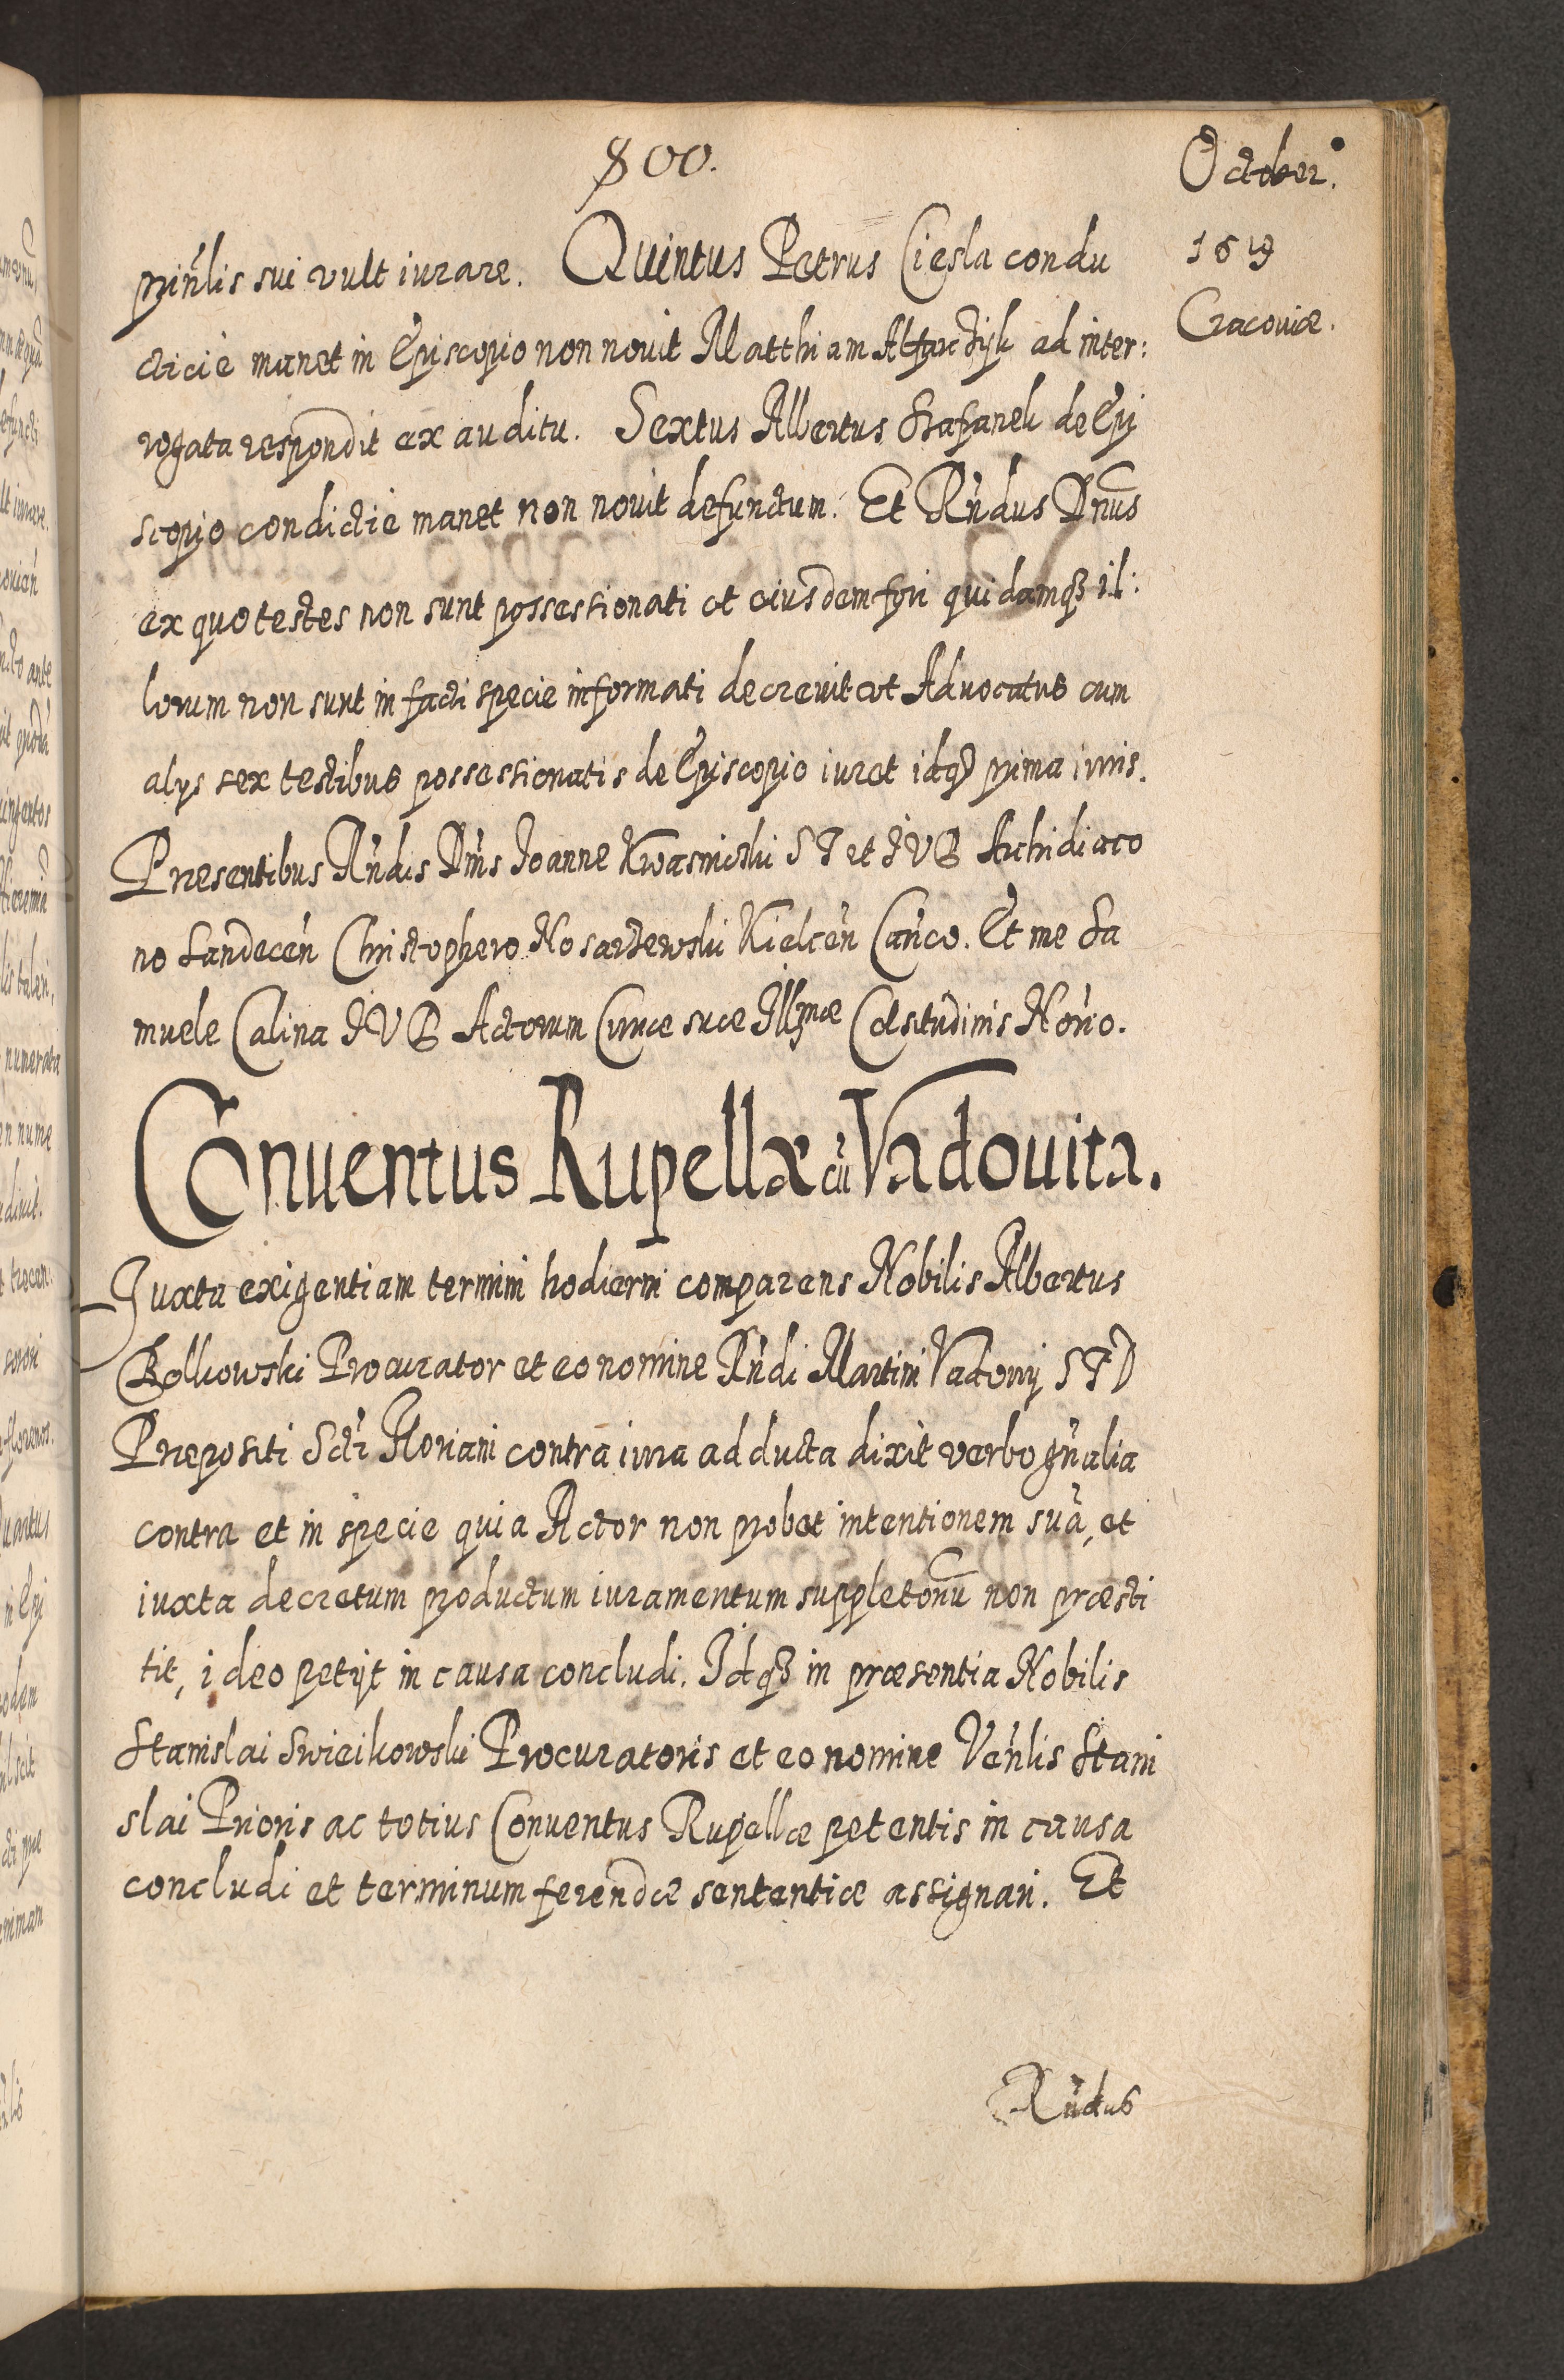 800.
October.
1619
Cracouiæ.
prin̄lis sui vult iurare. Quintus Petrus Ciesla condu
cticie manet in Episcopio non nouit Matthiam ad inter:
rogata respondit ex auditu. Sextus Albertus Stefanek de Epi
scopio condictie manet non nouit defunctum. Et Rn̄dus Dn̄us
ex quo testes non sunt possessionati et eiusdem fori quidamqȝ il:
lorum non sunt in facti specie informati decreuit ut Aduocatus cum
alys sex testibus possessionatis de Episcopio iuret idqȝ prima iuris.
Præsentibus Rn̄dis Dn̄is Ioanne Kwasnicski S T et I V D Archidiaco
no Sandecen̄ Christophero Nosarzewski Kielcen̄ Can̄co. Et me Sa
muele Calina I V D Actorum Curiæ suæ Illmæ Celsitudinis Norio.
Conuentus Rupellæ cū Vadouita.
Iuxta exigentiam termini hodierni comparens Nobilis Albertus
Bolkowski Procurator et eo nomine Rn̄di Martini Vadouij S T D
Præpositi Scti Floriani contra iura adducta dixit verbo gn̄alia
contra et in specie quia Actor non probet intentionem suā, et
iuxta decretum productum iuramentum suppletoriū non præsti
tit, ideo petijt in causa concludi. Idqȝ in præsentia Nobilis
Stanislai Swieikowski Procuratoris et eo nomine Ven̄lis Stani
slai Prioris ac totius Conuentus Rupellæ petentis in causa
concludi et terminum ferendæ sententiæ assignari. Et
Rn̄dus